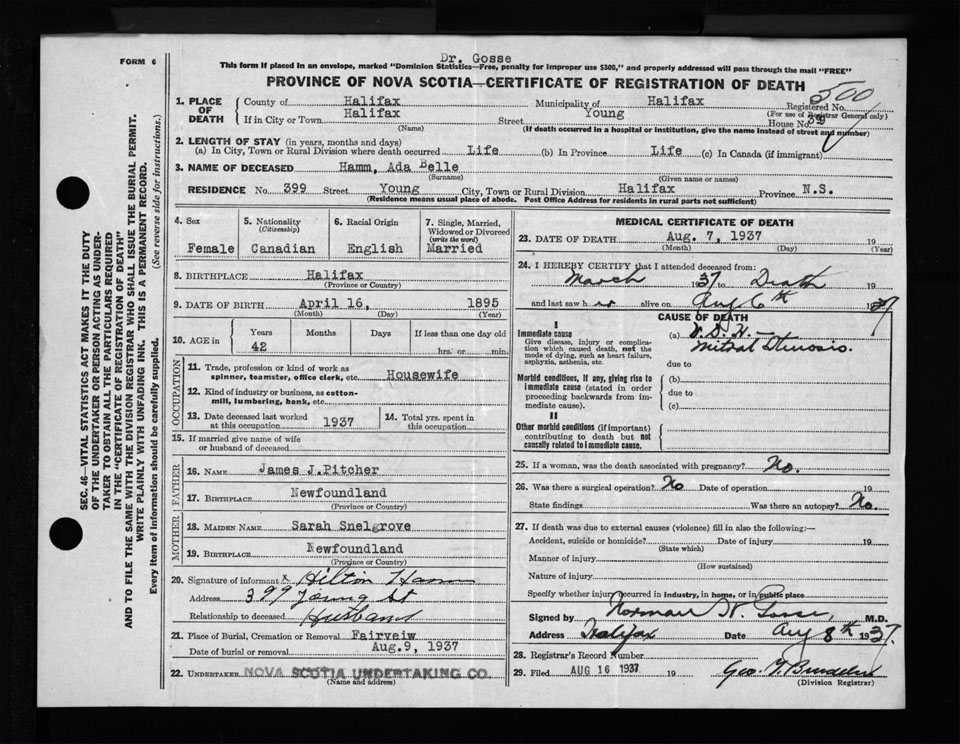 Dr. Gosse
FORM 6
This form if placed in an envelope, marked "Dominion Statistics—Free, penalty for improper use $300," and properly addressed will pass through the mail "FREE"
PROVINCE OF NOVA SCOTIA—CERTIFICATE OF REGISTRATION OF DEATH
500
1. PLACE OF DEATH
County of Halifax Municipality of Halifax Registered No.
(For use of Registrar General only)
If in City or Town Halifax Street Young House No. 399
(Name) (If death occurred in a hospital or institution, give the name instead of street and number)
2. LENGTH OF STAY (in years, months and days)
(a) In City, Town or Rural Division where death occurred Life (b) In Province Life (c) In Canada (if immigrant)
3. NAME OF DECEASED Hamm, Ada Belle
(Surname) (Given name or names)
RESIDENCE No. 399 Street Young City, Town or Rural Division Halifax Province N.S.
(Residence means usual place of abode. Post Office Address for residents in rural parts not sufficient)
4. Sex
Female
5. Nationality
(Citizenship)
Canadian
6. Racial Origin
English
7. Single, Married,
Widowed or Divorced
(write the word)
Married
8. BIRTHPLACE Halifax
(Province or Country)
9. DATE OF BIRTH April 16, 1895
(Month) (Day) (Year)
10. AGE in
Years Months Days If less than one day old
42 hrs. or min.
OCCUPATION
11. Trade, profession or kind of work as
spinner, teamster, office clerk, etc. Housewife
12. Kind of industry or business, as cotton-
mill, lumbering, bank, etc.
13. Date deceased last worked
at this occupation 1937
14. Total yrs. spent in
this occupation
15. If married give name of wife
or husband of deceased
FATHER
16. NAME James J. Pitcher
17. BIRTHPLACE Newfoundland
(Province or Country)
MOTHER
18. MAIDEN NAME Sarah Snelgrove
19. BIRTHPLACE Newfoundland
(Province or Country)
20. Signature of informant x Hilton Hamm
Address 399 Young St
Relationship to deceased Husband
21. Place of Burial, Cremation or Removal Fairveiw
Date of burial or removal Aug.9, 1937
22. UNDERTAKER NOVA SCOTIA UNDERTAKING CO.
(Name and address)
MEDICAL CERTIFICATE OF DEATH
23. DATE OF DEATH Aug. 7, 1937 19
(Month) (Day) (Year)
24. I HEREBY CERTIFY that I attended deceased from:
March 1937 to Death
and last saw her alive on Aug 6th 1937
CAUSE OF DEATH
I
Immediate cause
Give disease, injury or complica-
tion which caused death, not the
mode of dying, such as heart failure,
asphyxia, asthenia, etc.
(a) V. D. H. —
Mitral Stenosis.
due to
Morbid conditions, if any, giving rise to
immediate cause (stated in order
proceeding backwards from im-
mediate cause).
(b)
due to
(c)
II
Other morbid conditions (if important)
contributing to death but not
causally related to immediate cause.
25. If a woman, was the death associated with pregnancy? No.
26. Was there a surgical operation? No Date of operation 19
State findings Was there an autopsy? No.
27. If death was due to external causes (violence) fill in also the following:—
Accident, suicide or homicide? Date of injury 19
(State which)
Manner of injury
(How sustained)
Nature of injury
Specify whether injury occurred in Industry, in home, or in public place
Signed by Norman H. Gosse, M.D.
Address Halifax Date Aug 8th 1937.
28. Registrar's Record Number
29. Filed AUG 16 1937 19
(Division Registrar)
SEC. 46—VITAL STATISTICS ACT MAKES IT THE DUTY
OF THE UNDERTAKER OR PERSON ACTING AS UNDER-
TAKER TO OBTAIN ALL THE PARTICULARS REQUIRED
IN THE "CERTIFICATE OF REGISTRATION OF DEATH"
AND TO FILE THE SAME WITH THE DIVISION REGISTRAR WHO SHALL ISSUE THE BURIAL PERMIT.
WRITE PLAINLY WITH UNFADING INK. THIS IS A PERMANENT RECORD.
Every item of information should be carefully supplied. (See reverse side for instructions.)